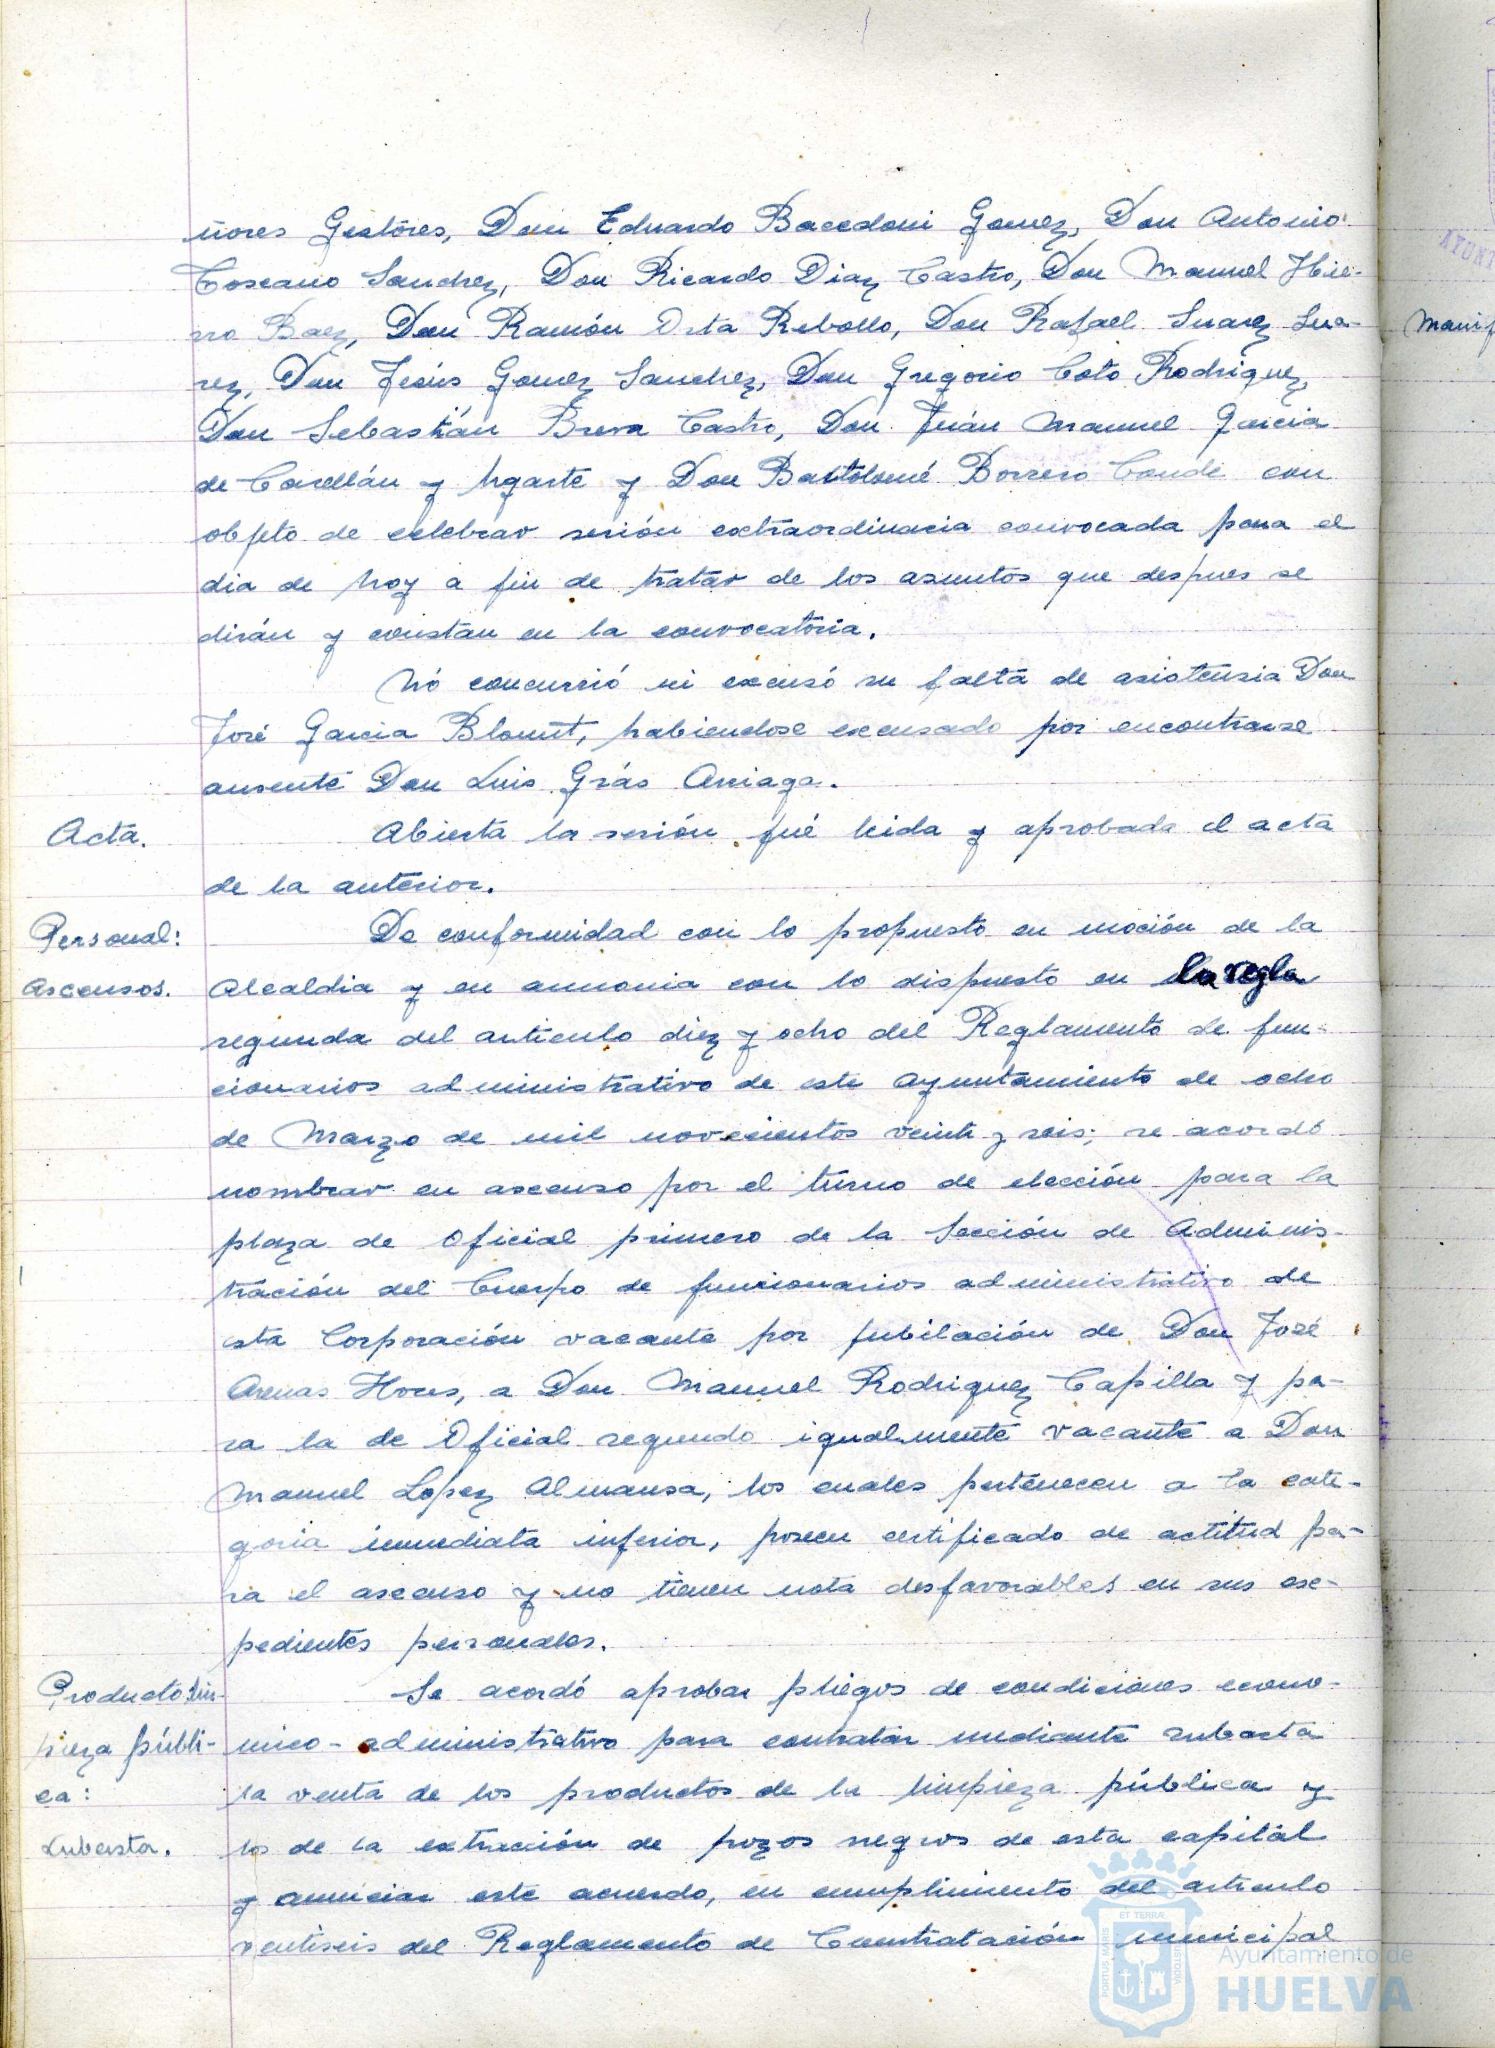 ñores Gestores, Don Eduardo Bacedoni Gomez, Don Antonio
Toscano Sanchez, Don Ricardo Diaz Castro, Don Manuel Hie-
rro Baez, Don Ramón Orta Rebollo, Don Rafael Suarez Sua-
rez, Don Jesús Gomez Sanchez, Don Gregorio Coto Rodriguez,
Don Sebastián Breva Castro, Don Juán Manuel Garcia
de Casellán y Ugarte y Don Bartolomé Borrero Conde con
objeto de celebrar sesión extraordinaria convocada para el
dia de hoy a fin de tratar de los asuntos que despues se
dirán y constan en la convocatoria.
No concurrió ni excusó su falta de asistensia Don
José Garcia Blount, habiendose excusado por encontrarse
ausente Don Luis Grás Arriaga.
Acta.
Abierta la sesión fué leida y aprobada el acta
de la anterior.
Personal:
Ascensos.
De conformidad con lo propuesto en moción de la
Alcaldia y en armonia con lo dispuesto en la regla
segunda del articulo diez y ocho del Reglamento de fun-
cionarios administrativo de este Ayuntamiento de ocho
de Marzo de mil novecientos veinte y seis; se acordó
nombrar en ascenso por el turno de elección para la
plaza de Oficial primero de la Sección de Adminis-
tración del Cuerpo de funcionarios administrativo de
esta Corporación vacante por jubilación de Don José
Arenas Hoces, a Don Manuel Rodriguez Capilla y pa-
ra la de Oficial segundo igualmente vacante a Don
Manuel Lopez Almansa, los cuales pertenecen a la cate-
goria inmediata inferior, poseen certificado de actitud pa-
ra el ascenso y no tienen nota desfavorables en sus ex-
pedientes personales.
Producto lim-
pieza públi-
ca:
Subasta.
Se acordó aprobar pliegos de condiciones econo-
mico-administrativo para contratar mediante subasta
la venta de los productos de la limpieza pública y
los de la extracción de pozos negros de esta capital
y anunciar este acuerdo, en cumplimiento del articulo
ventiseis del Reglamento de Contratación municipal
Manif
AYUNT
PORTUS MARIS
ET TERRÆ
CUSTODIA
Ayuntamiento de
HUELVA